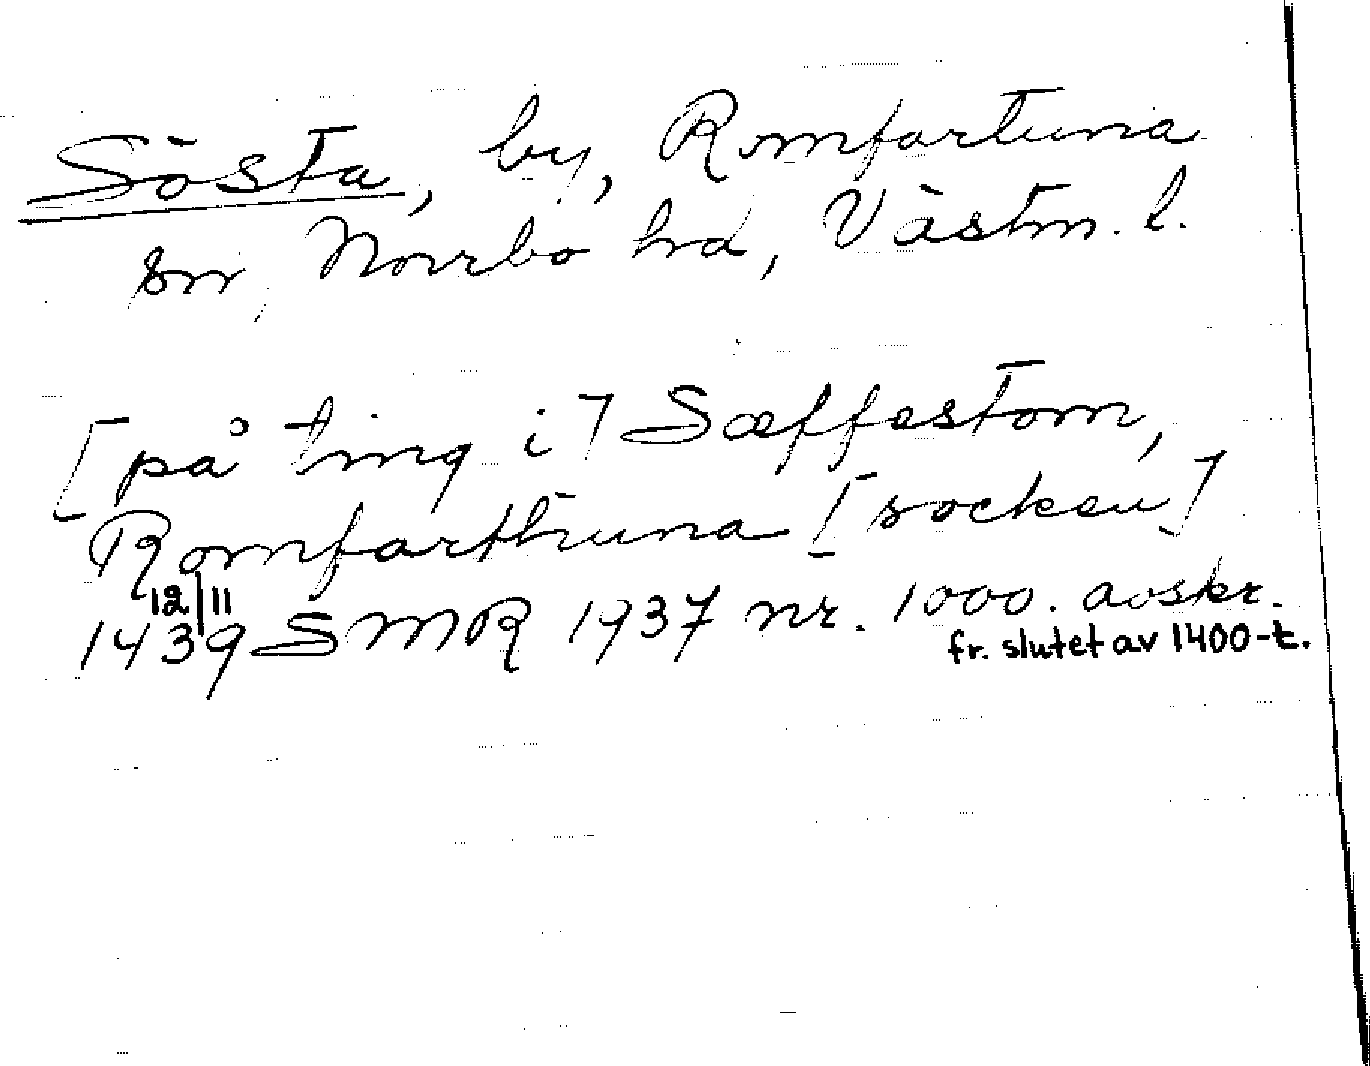 Sösta, by, Romfartuna
sn, Norrbo hd, Västm. l.
[på ting i] Sæffastom,
Romfarthuna [socken]
12/11
1439 SMR 1937 nr. 1000. avskr.
fr. slutet av 1400-t.